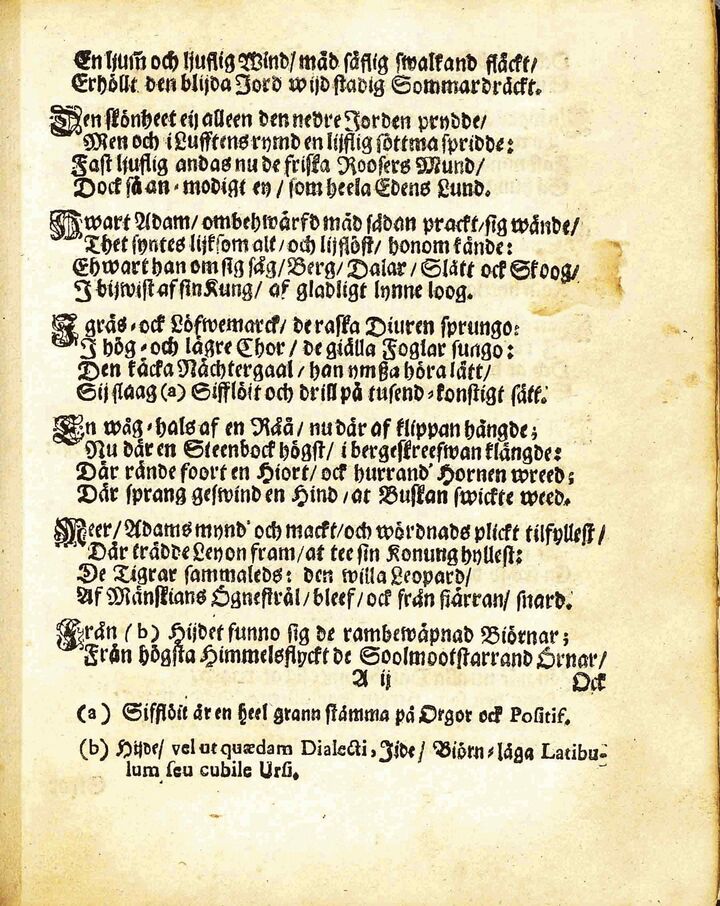 En ljum̃ och ljuflig Wind/ mäd säflig swalkand fläckt/
Erhöllt den blijda Jord wijd stadig Sommardräckt.
Den skönheet eij alleen den nedre Jorden prydde/
Men och i Lufftens rymd en lijflig söttma spridde:
Fast ljuflig andas nu de friska Roosers Mund/
Dock så an-modigt ey/ som heela Edens Lund.
Hwart Adam/ ombehwärfd mäd sådan prackt/ sig wände/
Thet syntes lijksom alt/ och lijflöst/ honom kände:
Ehwart han om sig såg/ Berg/ Dalar/ Slätt ock Skoog/
I bijwist af sin Kung/ af gladligt lynne loog.
I gräs-ock Löfwemarck/ de raska Diuren sprungo:
I hög-och lägre Chor/ de giälla Foglar sungo:
Den käcka Nächtergaal/ han ymßa höra lätt/
Sij slaag (a) Sifflöit och drill på tusend-konstigt sätt.
En wåg-hals af en Råå/ nu där af klippan hängde;
Nu där en Steenbock högst/ i bergeskreefwan klängde:
Där rände foort en Hiort/ ock hurrand' Hornen wreed;
Där sprang geswind en Hind/ at Buskan swickte weed.
Meer/ Adams mynd' och mackt/ och wördnads plickt tilfyllest/
Där trädde Leyon fram/ at tee sin Konung hyllest:
De Tigrar sammaleds: den willa Leopard/
Af Mänskians Ögnestrål/ bleef/ ock från fiärran/ snard.
Från (b) Hijdet funno sig de rambewäpnad Biörnar;
Från högsta Himmelsflyckt de Soolmootstarrand Örnar/
A ij Ock
(a) Sifflöit är en heel grann stämma på Orgor ock Positif.
(b) Hijde/ vel ut quædam Dialecti, Jide/ Biörn-läga Latibu-
lum seu cubile Ursi.